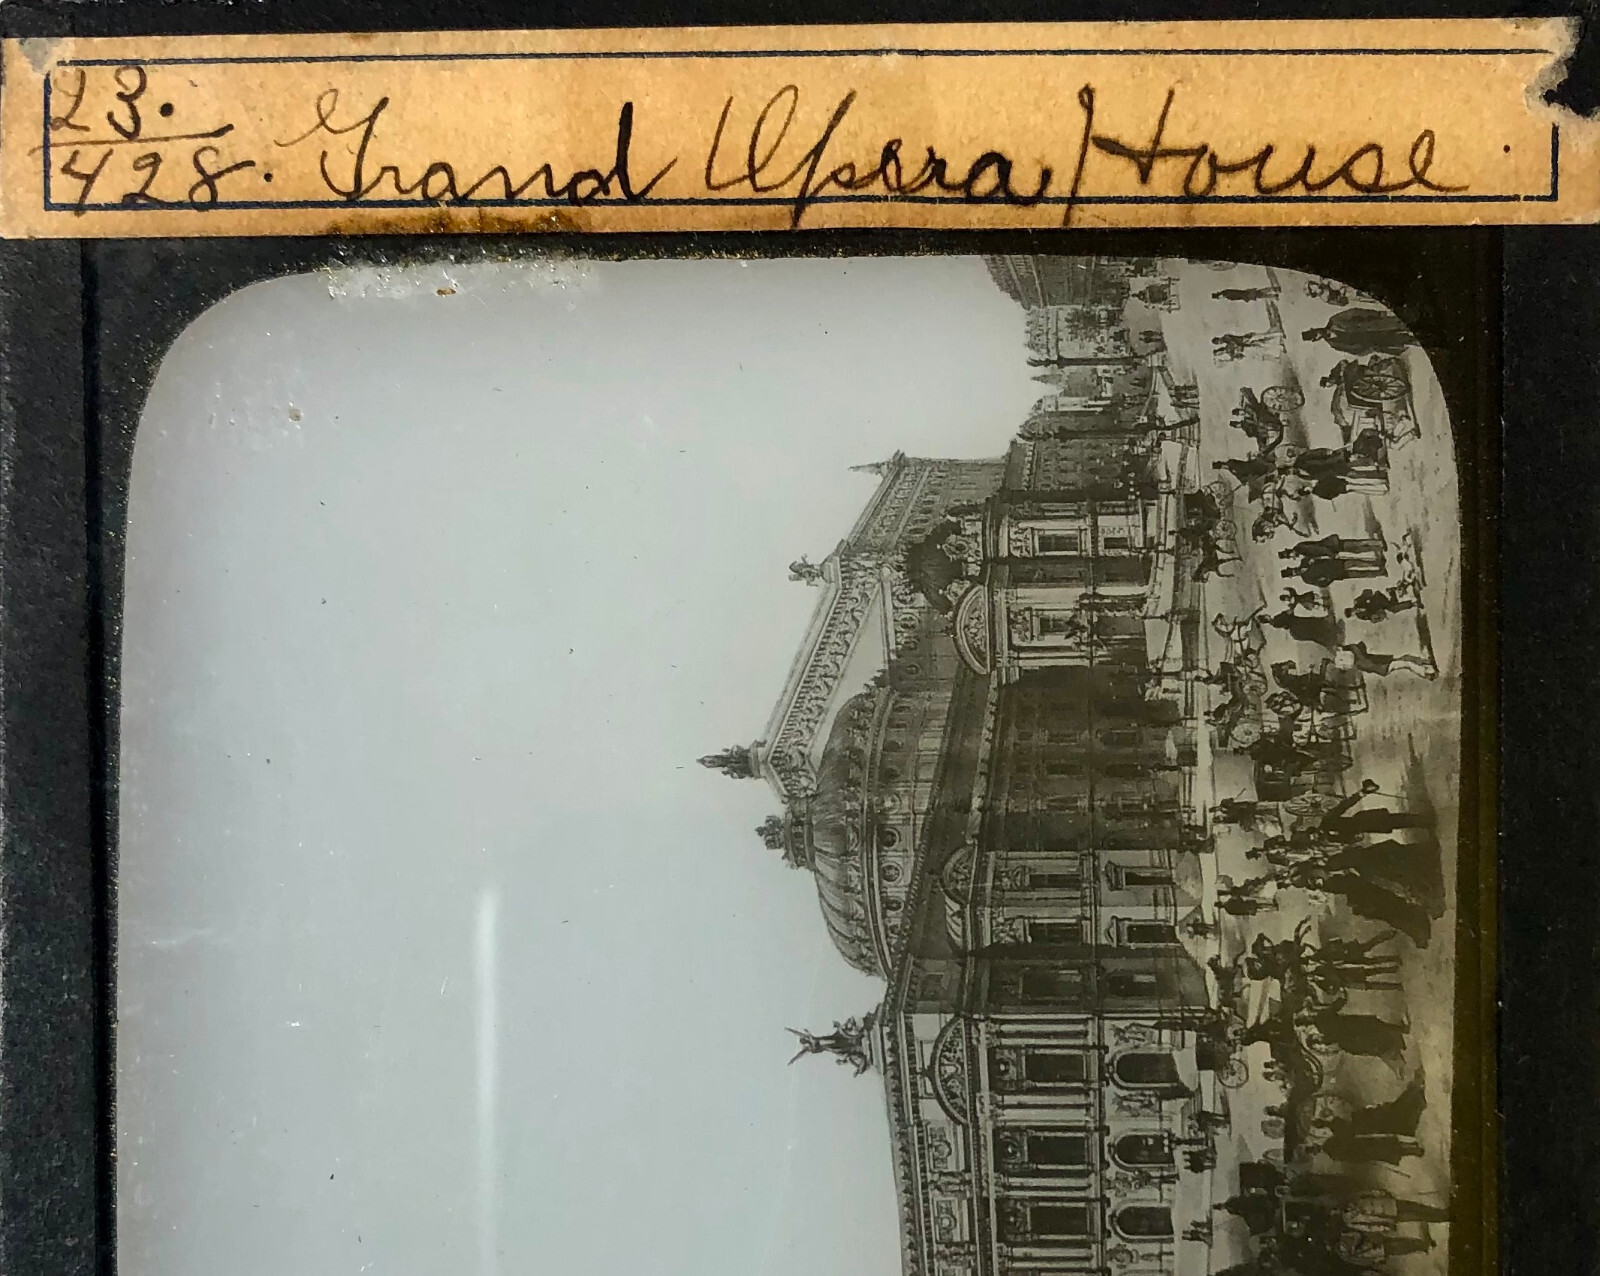 23.
428. Grand Opera House.